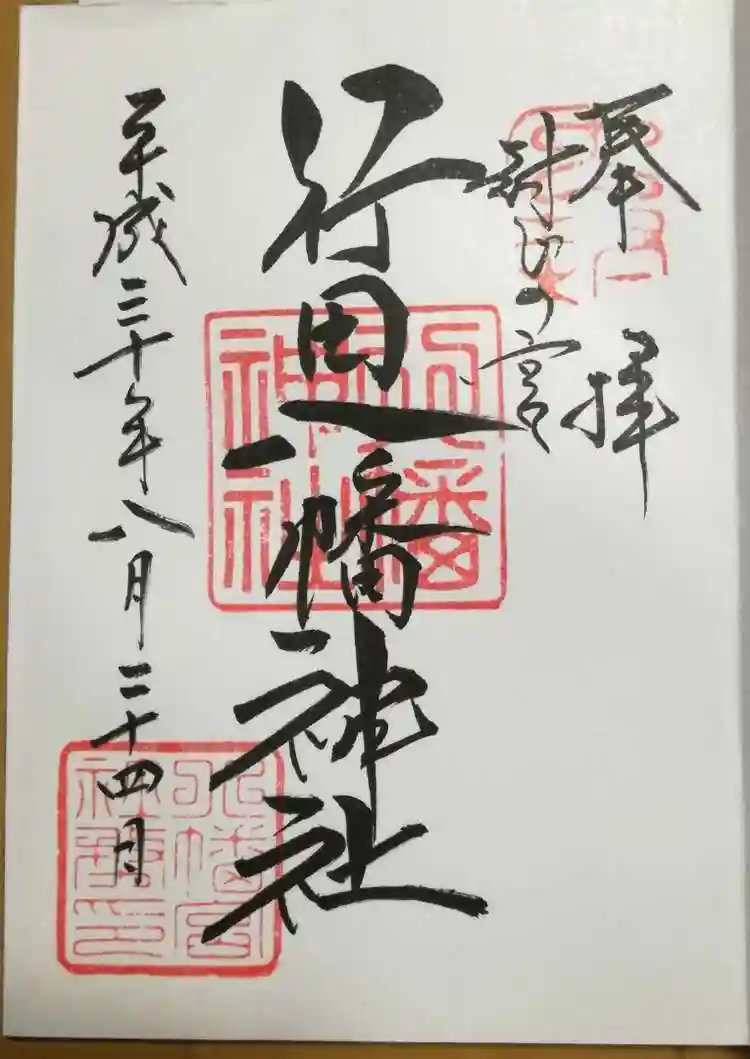 奉拝
封じの宮
行田八幡神社
平成三十年八月二十四日
八幡神社
八幡宮